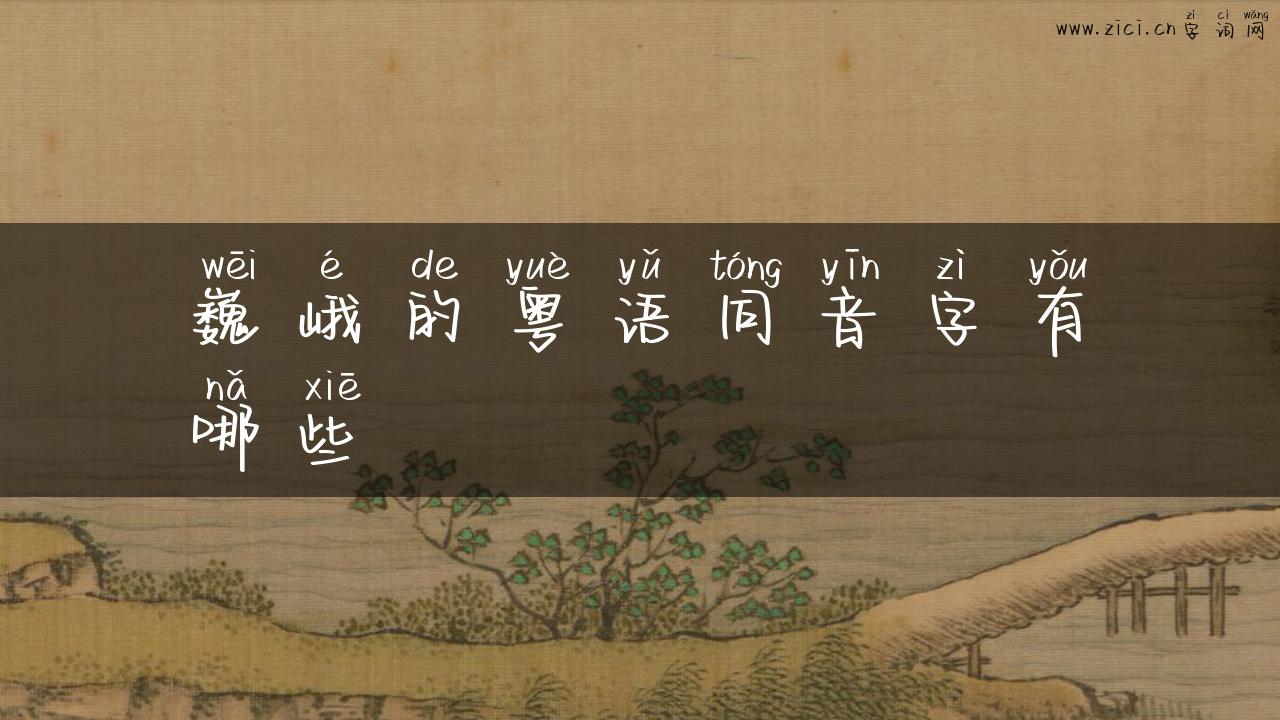 zì cí wǎng
www.zici.cn 字词网
wēi é de yuè yǔ tóng yīn zì yǒu
巍峨的粤语同音字有
nǎ xiē
哪些